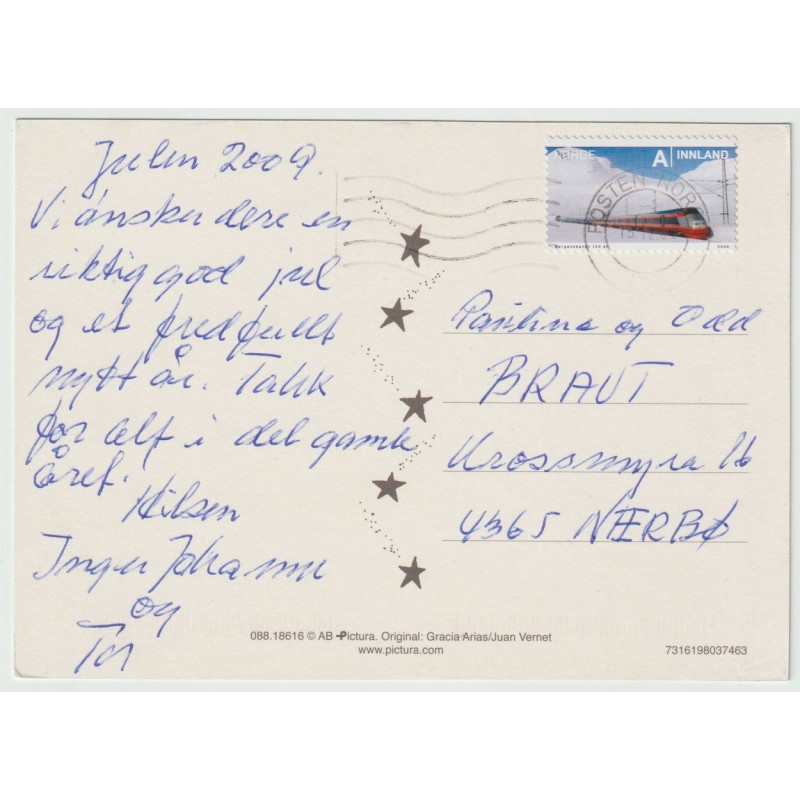 Julen 2009.
Vi ønsker dere en
riktig god jul
og et fredfullt
nytt år. Takk
for alt i det gamle
året.
Hilsen
Inger Johanne
og
Tor
NORGE A INNLAND
Bergensbanen 100 år 2009
POSTEN NOR
og Odd
BRAUT
Krossmyra 16
4365 NÆRBØ
088.18616 © AB Pictura. Original: Gracia Arias/Juan Vernet
www.pictura.com
7316198037463